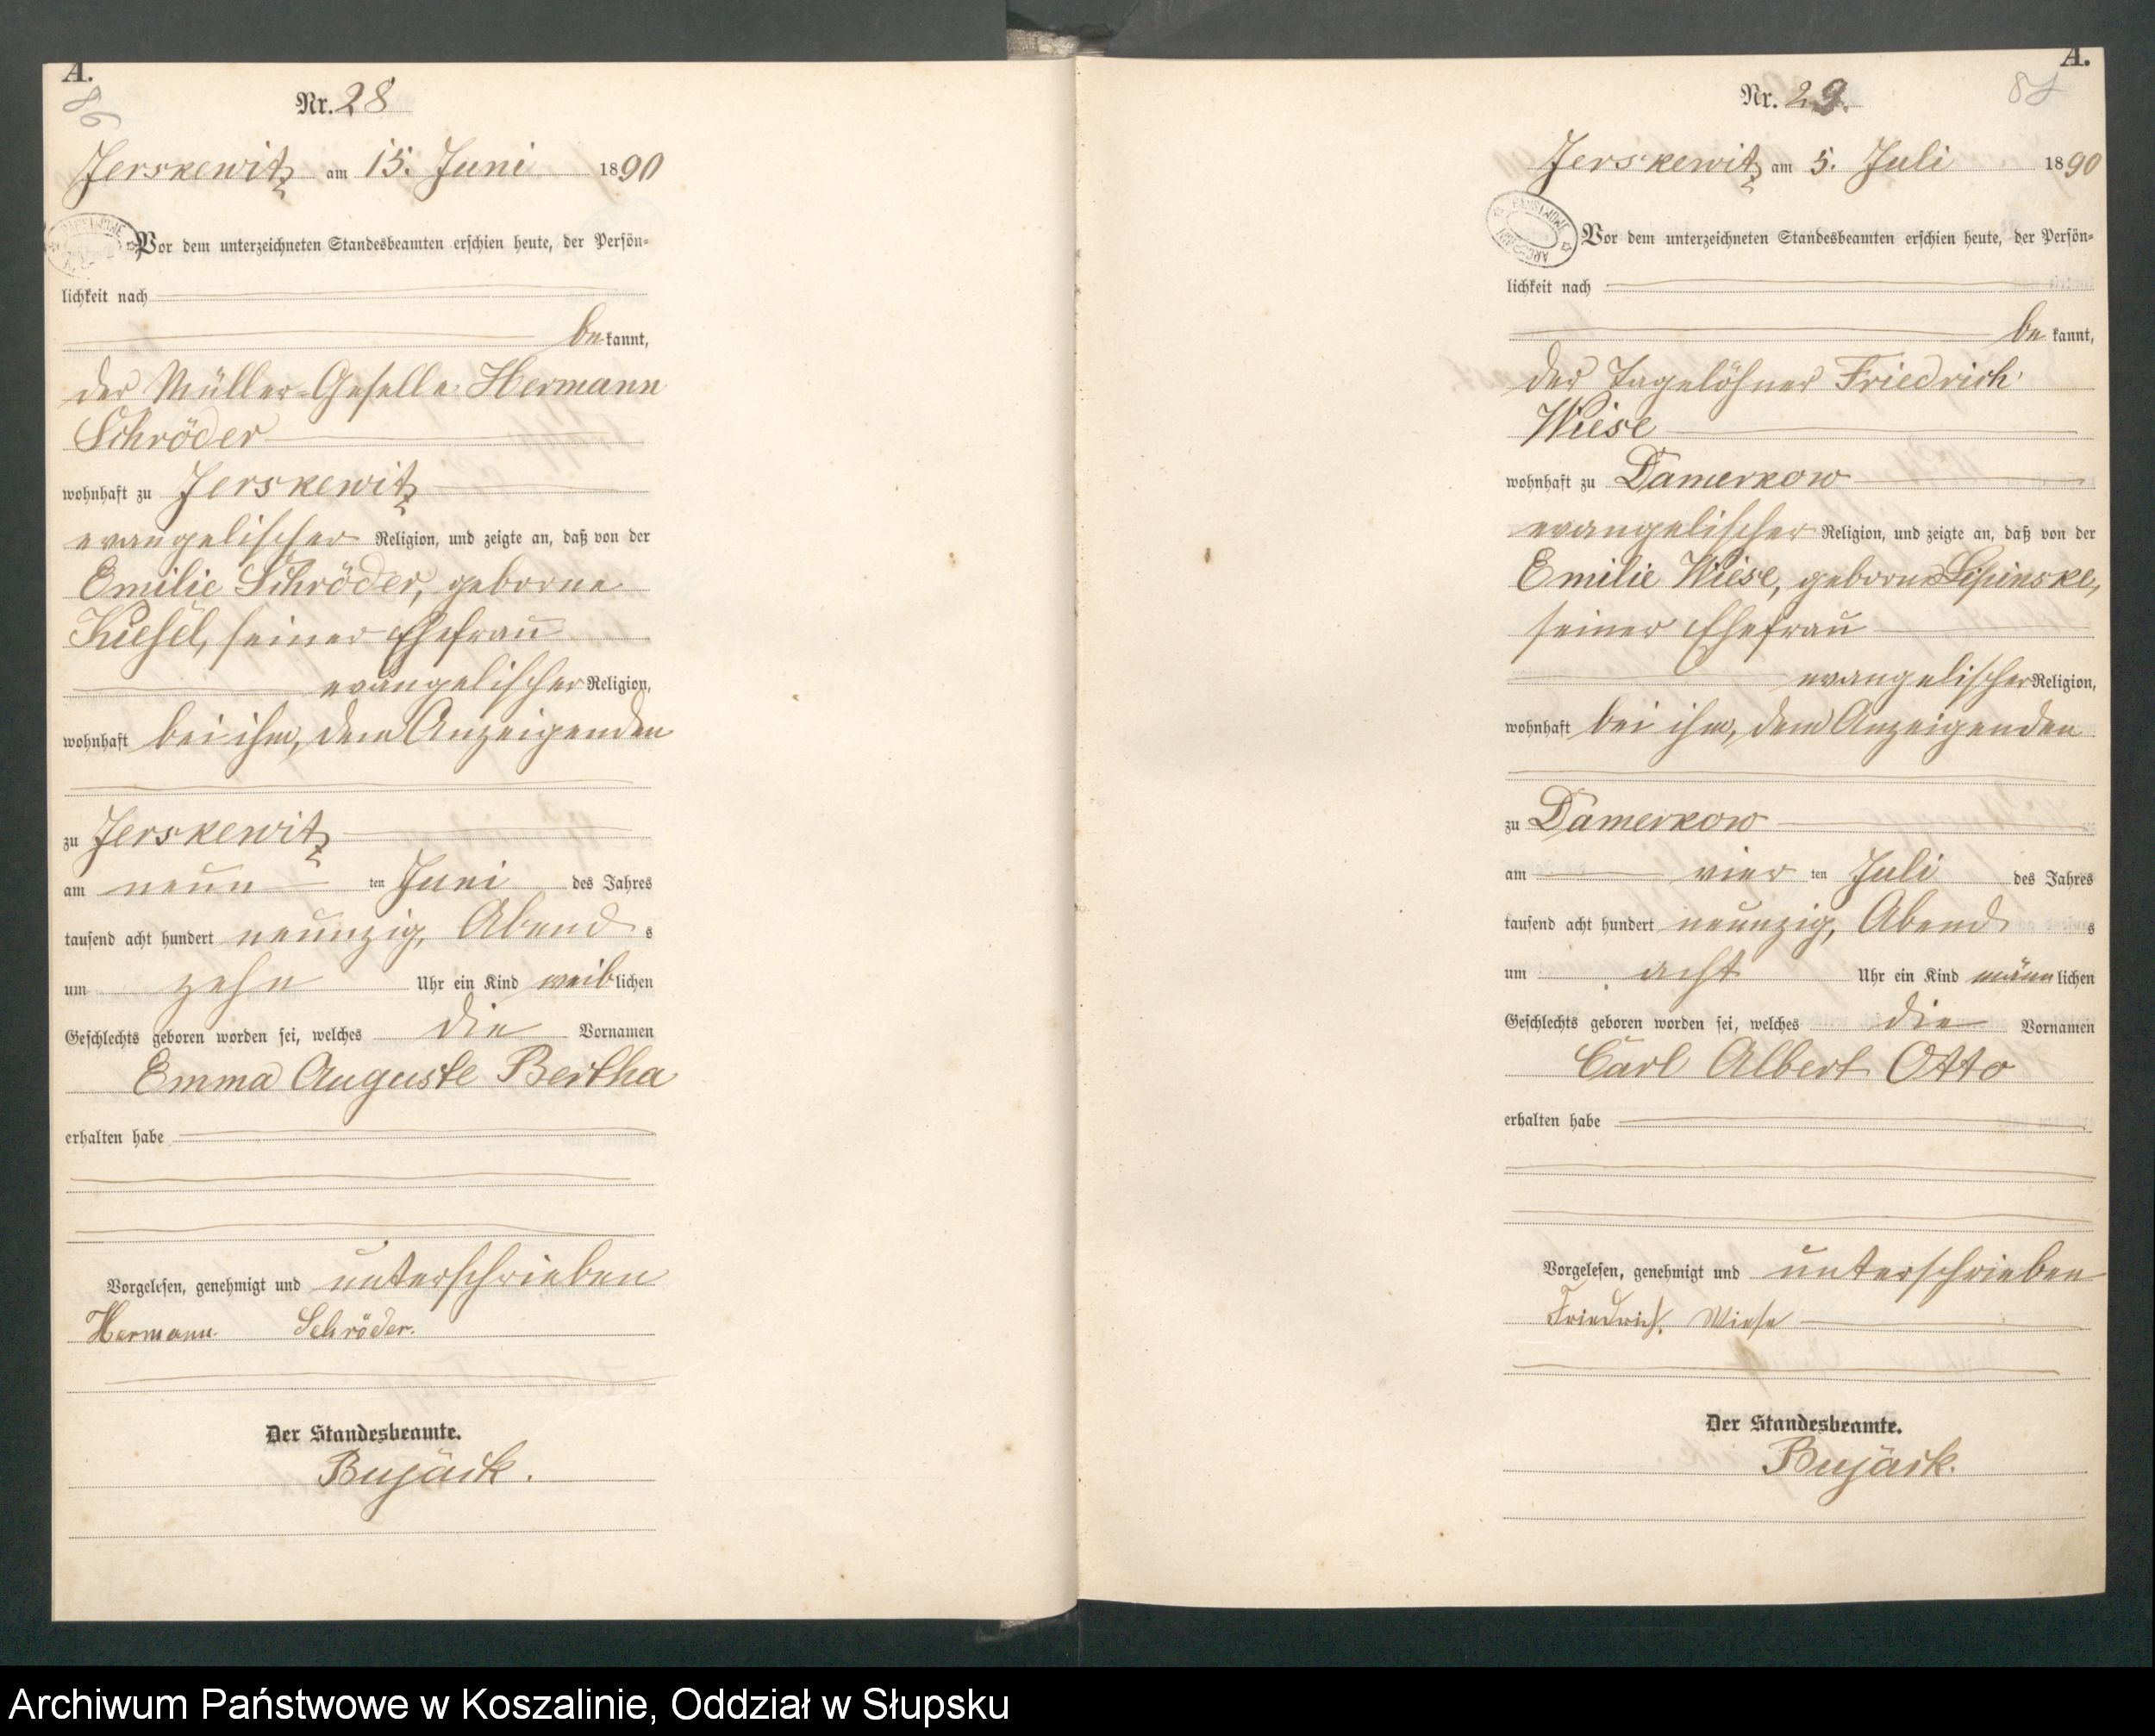 A.
86
Nr. 28
Jerskewitz am 15. Juni 1890
Vor dem unterzeichneten Standesbeamten erschien heute, der Persön=
lichkeit nach
bekannt,
der Müller-Geselle Hermann
Schröder
wohnhaft zu Jerskewitz
evangelischer Religion, und zeigte an, daß von der
Emilie Schröder, geborne
Kiesel, seiner Ehefrau
evangelischer Religion,
wohnhaft bei ihm, dem Anzeigenden
zu Jerskewitz
am neun ten Juni des Jahres
tausend acht hundert neunzig, Abend s
um zehn Uhr ein Kind weiblichen
Geschlechts geboren worden sei, welches die Vornamen
Emma Auguste Bertha
erhalten habe
Vorgelesen, genehmigt und unterschrieben
Hermann Schröder.
Der Standesbeamte.
Bujäck.
A.
Nr. 29.
Jerskewitz am 5. Juli 1890
PAŃSTWOWE
Vor dem unterzeichneten Standesbeamten erschien heute, der Persön=
lichkeit nach
be kannt,
der Tagelöhner Friedrich
Wiese
wohnhaft zu Damerkow
evangelischer Religion, und zeigte an, daß von der
Emilie Wiese, geborne Lipinske,
seiner Ehefrau
evangelischer Religion,
wohnhaft bei ihm, dem Anzeigenden
zu Damerkow
am vier ten Juli des Jahres
tausend acht hundert neunzig, Abend s
um acht Uhr ein Kind männlichen
Geschlechts geboren worden sei, welches die Vornamen
Carl Albert Otto
erhalten habe
Vorgelesen, genehmigt und unterschrieben
Friedrich Wiese
Der Standesbeamte.
Bujäck.
Archiwum Państwowe w Koszalinie, Oddział w Słupsku